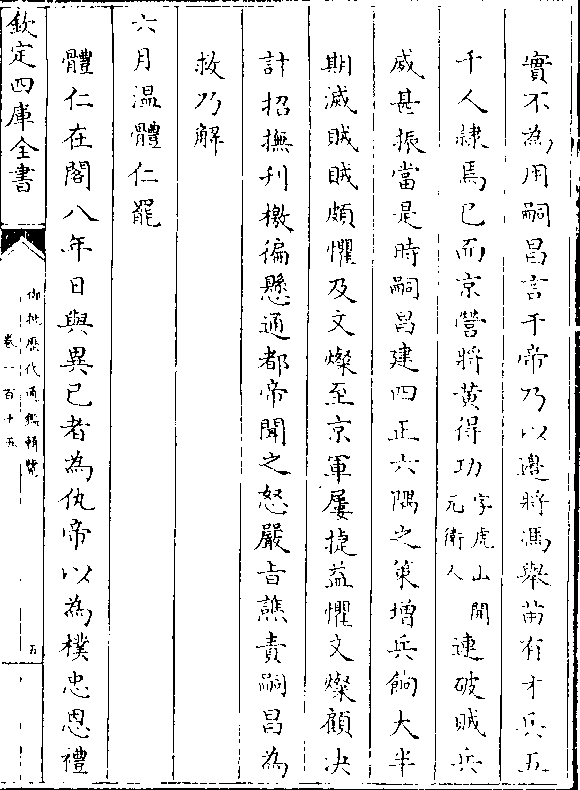 實不為用嗣昌言于帝乃以邊將馮舉苗有才兵五
千人隸焉已而京營將黃得功字虎山開元衛人連破賊兵
威甚振當是時嗣昌建四正六隅之策增兵餉大半
期滅賊賊頗懼及文燦至京軍屢捷益懼文燦顧决
計招撫刋檄徧懸通都帝聞之怒嚴旨譙責嗣昌為
救乃解
六月温體仁罷
體仁在閣八年日與異已者為仇帝以為樸忠恩禮
欽定四庫全書
御批歷代通鑑輯覽
卷一百十五
五